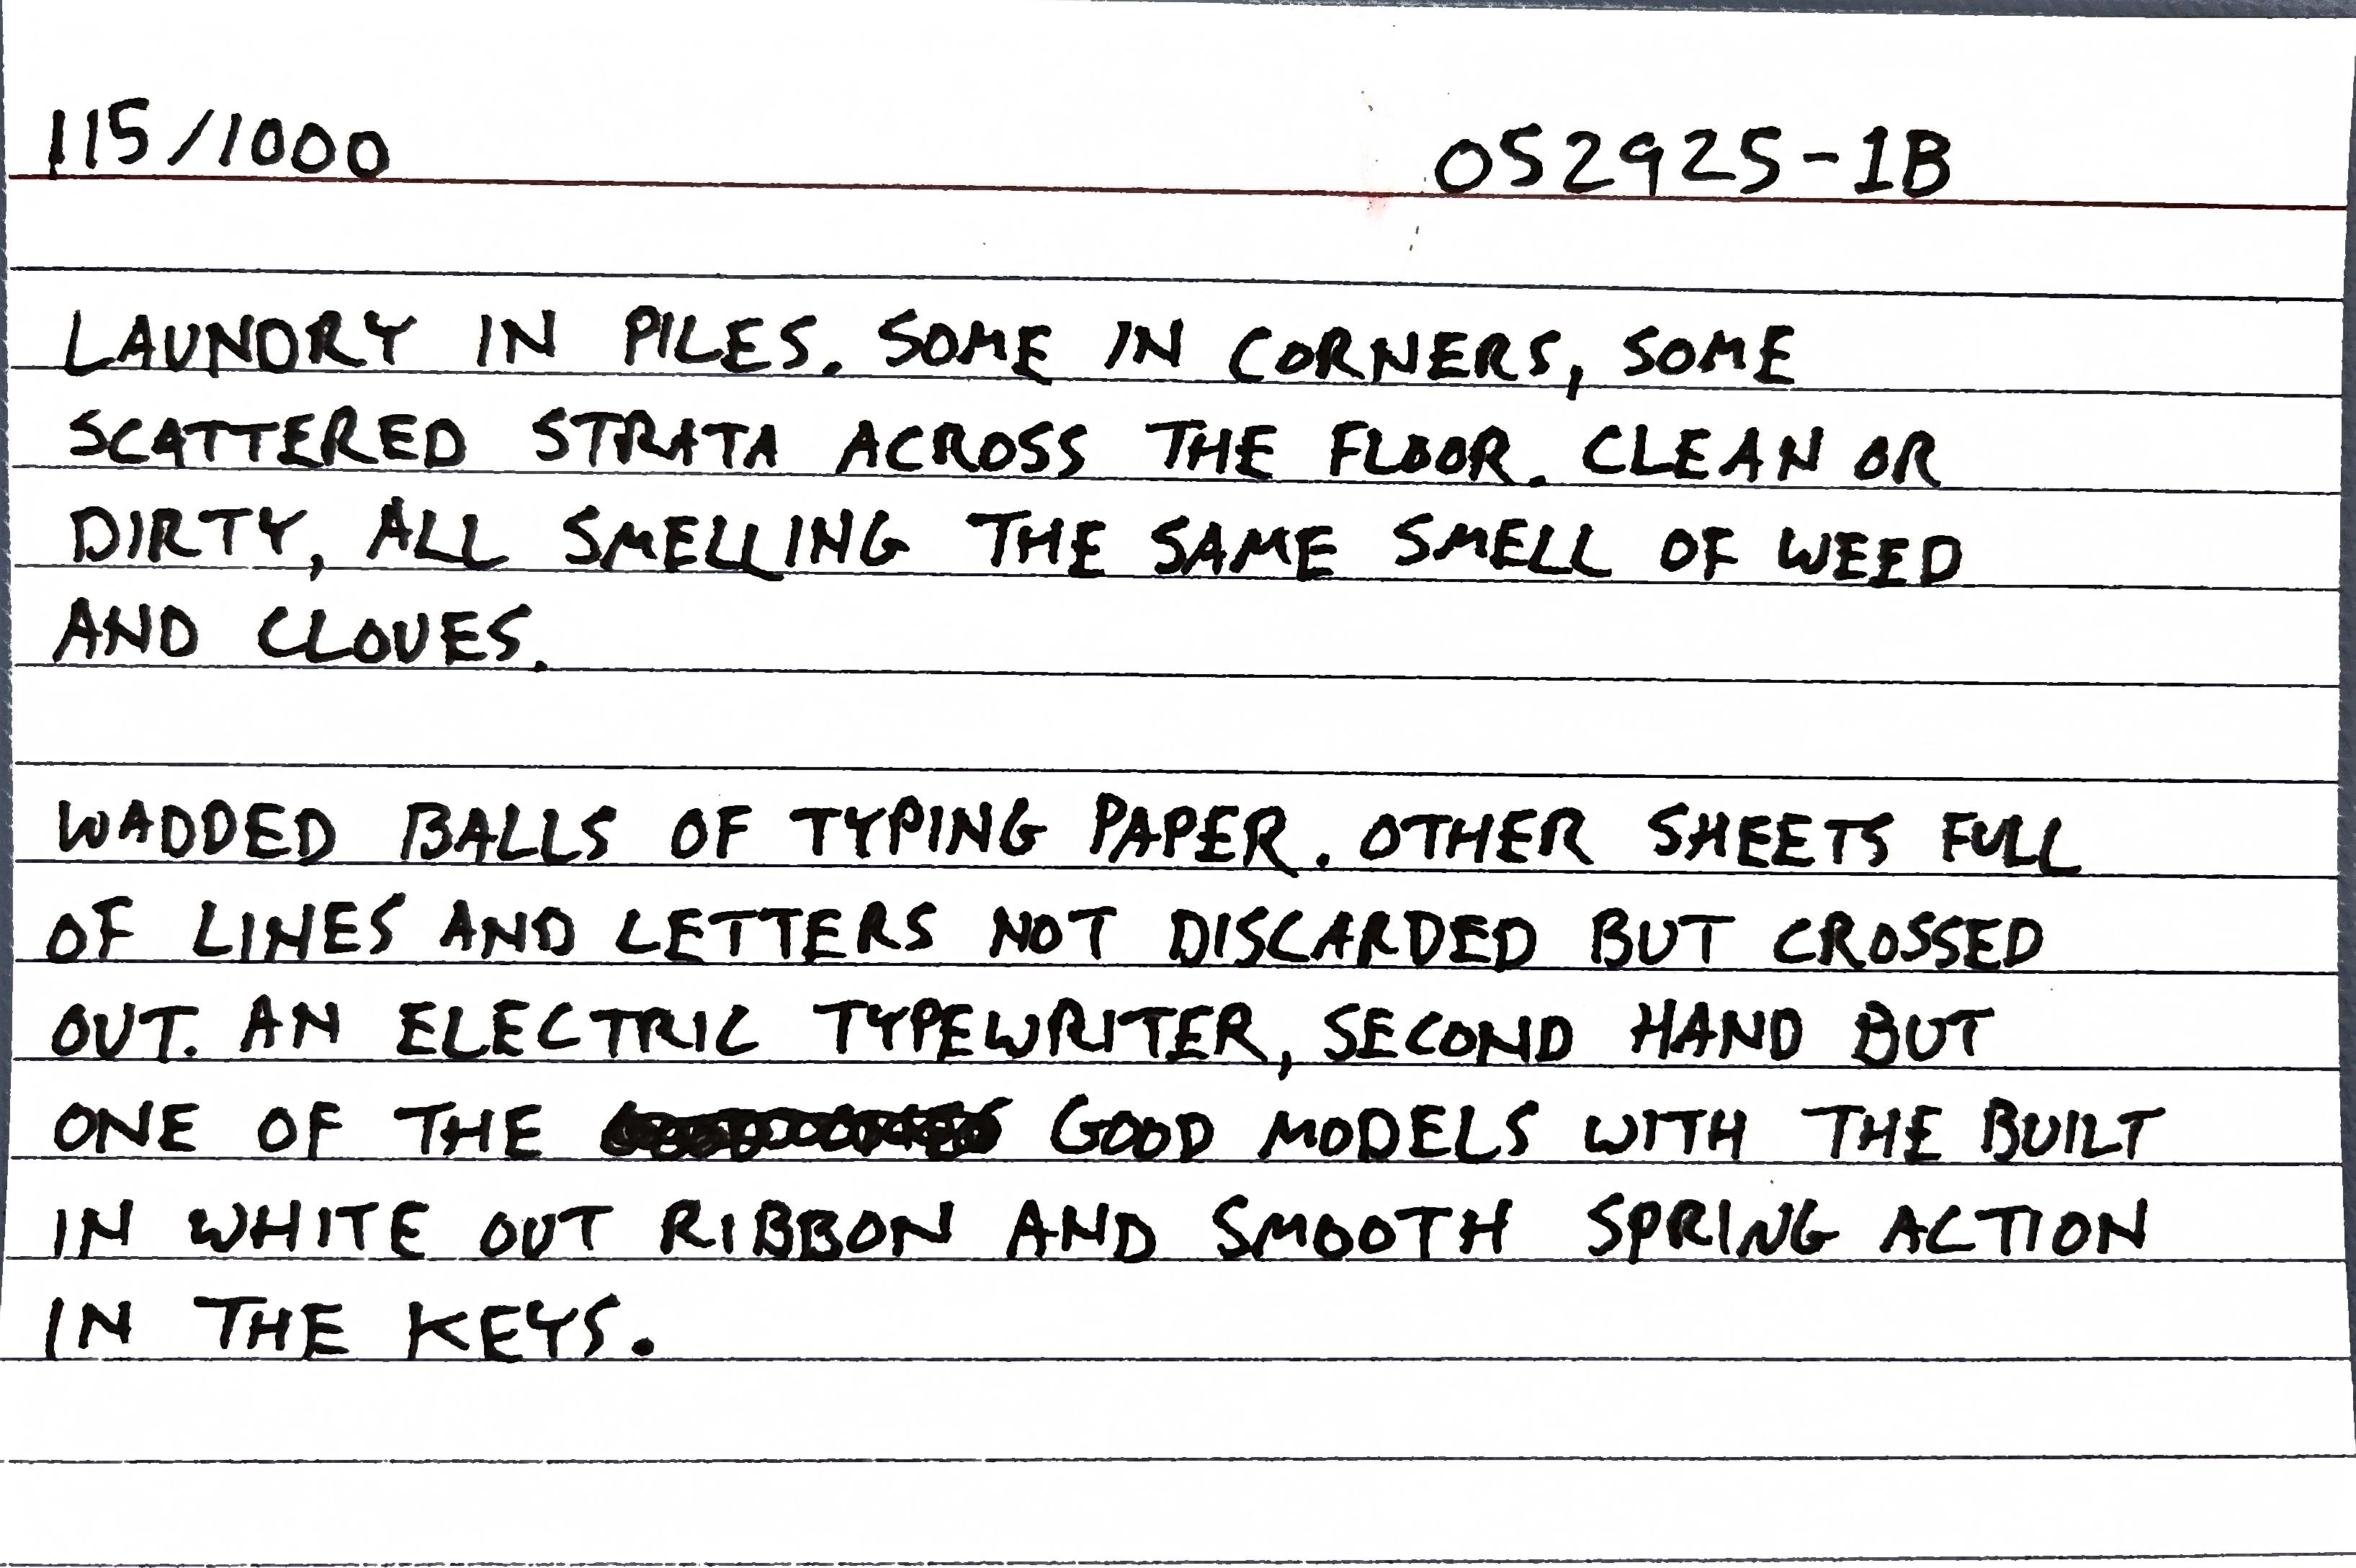 115/1000
052925-1B
LAUNDRY IN PILES. SOME IN CORNERS, SOME
SCATTERED STRATA ACROSS THE FLOOR. CLEAN OR
DIRTY, ALL SMELLING THE SAME SMELL OF WEED
AND CLOVES.
WADDED BALLS OF TYPING PAPER. OTHER SHEETS FULL
OF LINES AND LETTERS NOT DISCARDED BUT CROSSED
OUT. AN ELECTRIC TYPEWRITER, SECOND HAND BUT
ONE OF THE GOOD MODELS WITH THE BUILT
IN WHITE OUT RIBBON AND SMOOTH SPRING ACTION
IN THE KEYS.